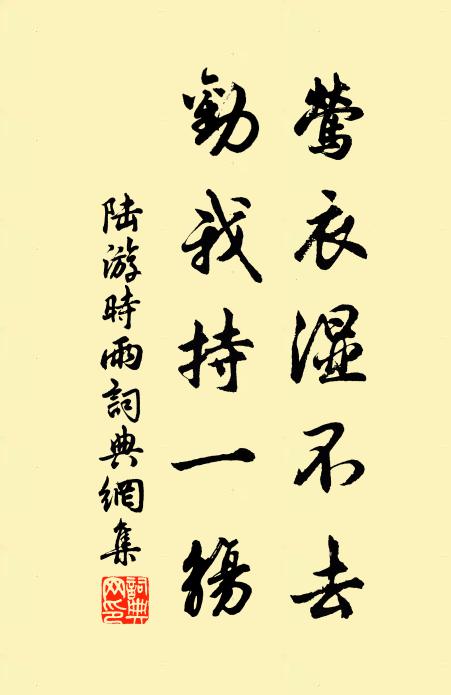 鶯衣湿不去
勸我持一觴
陆游時雨詞典網集
詞典网印